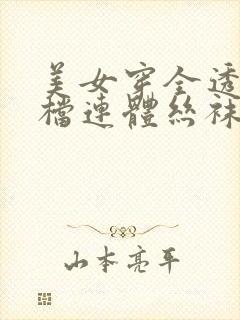 美女穿全透
檔連體絲袜
山本亮平